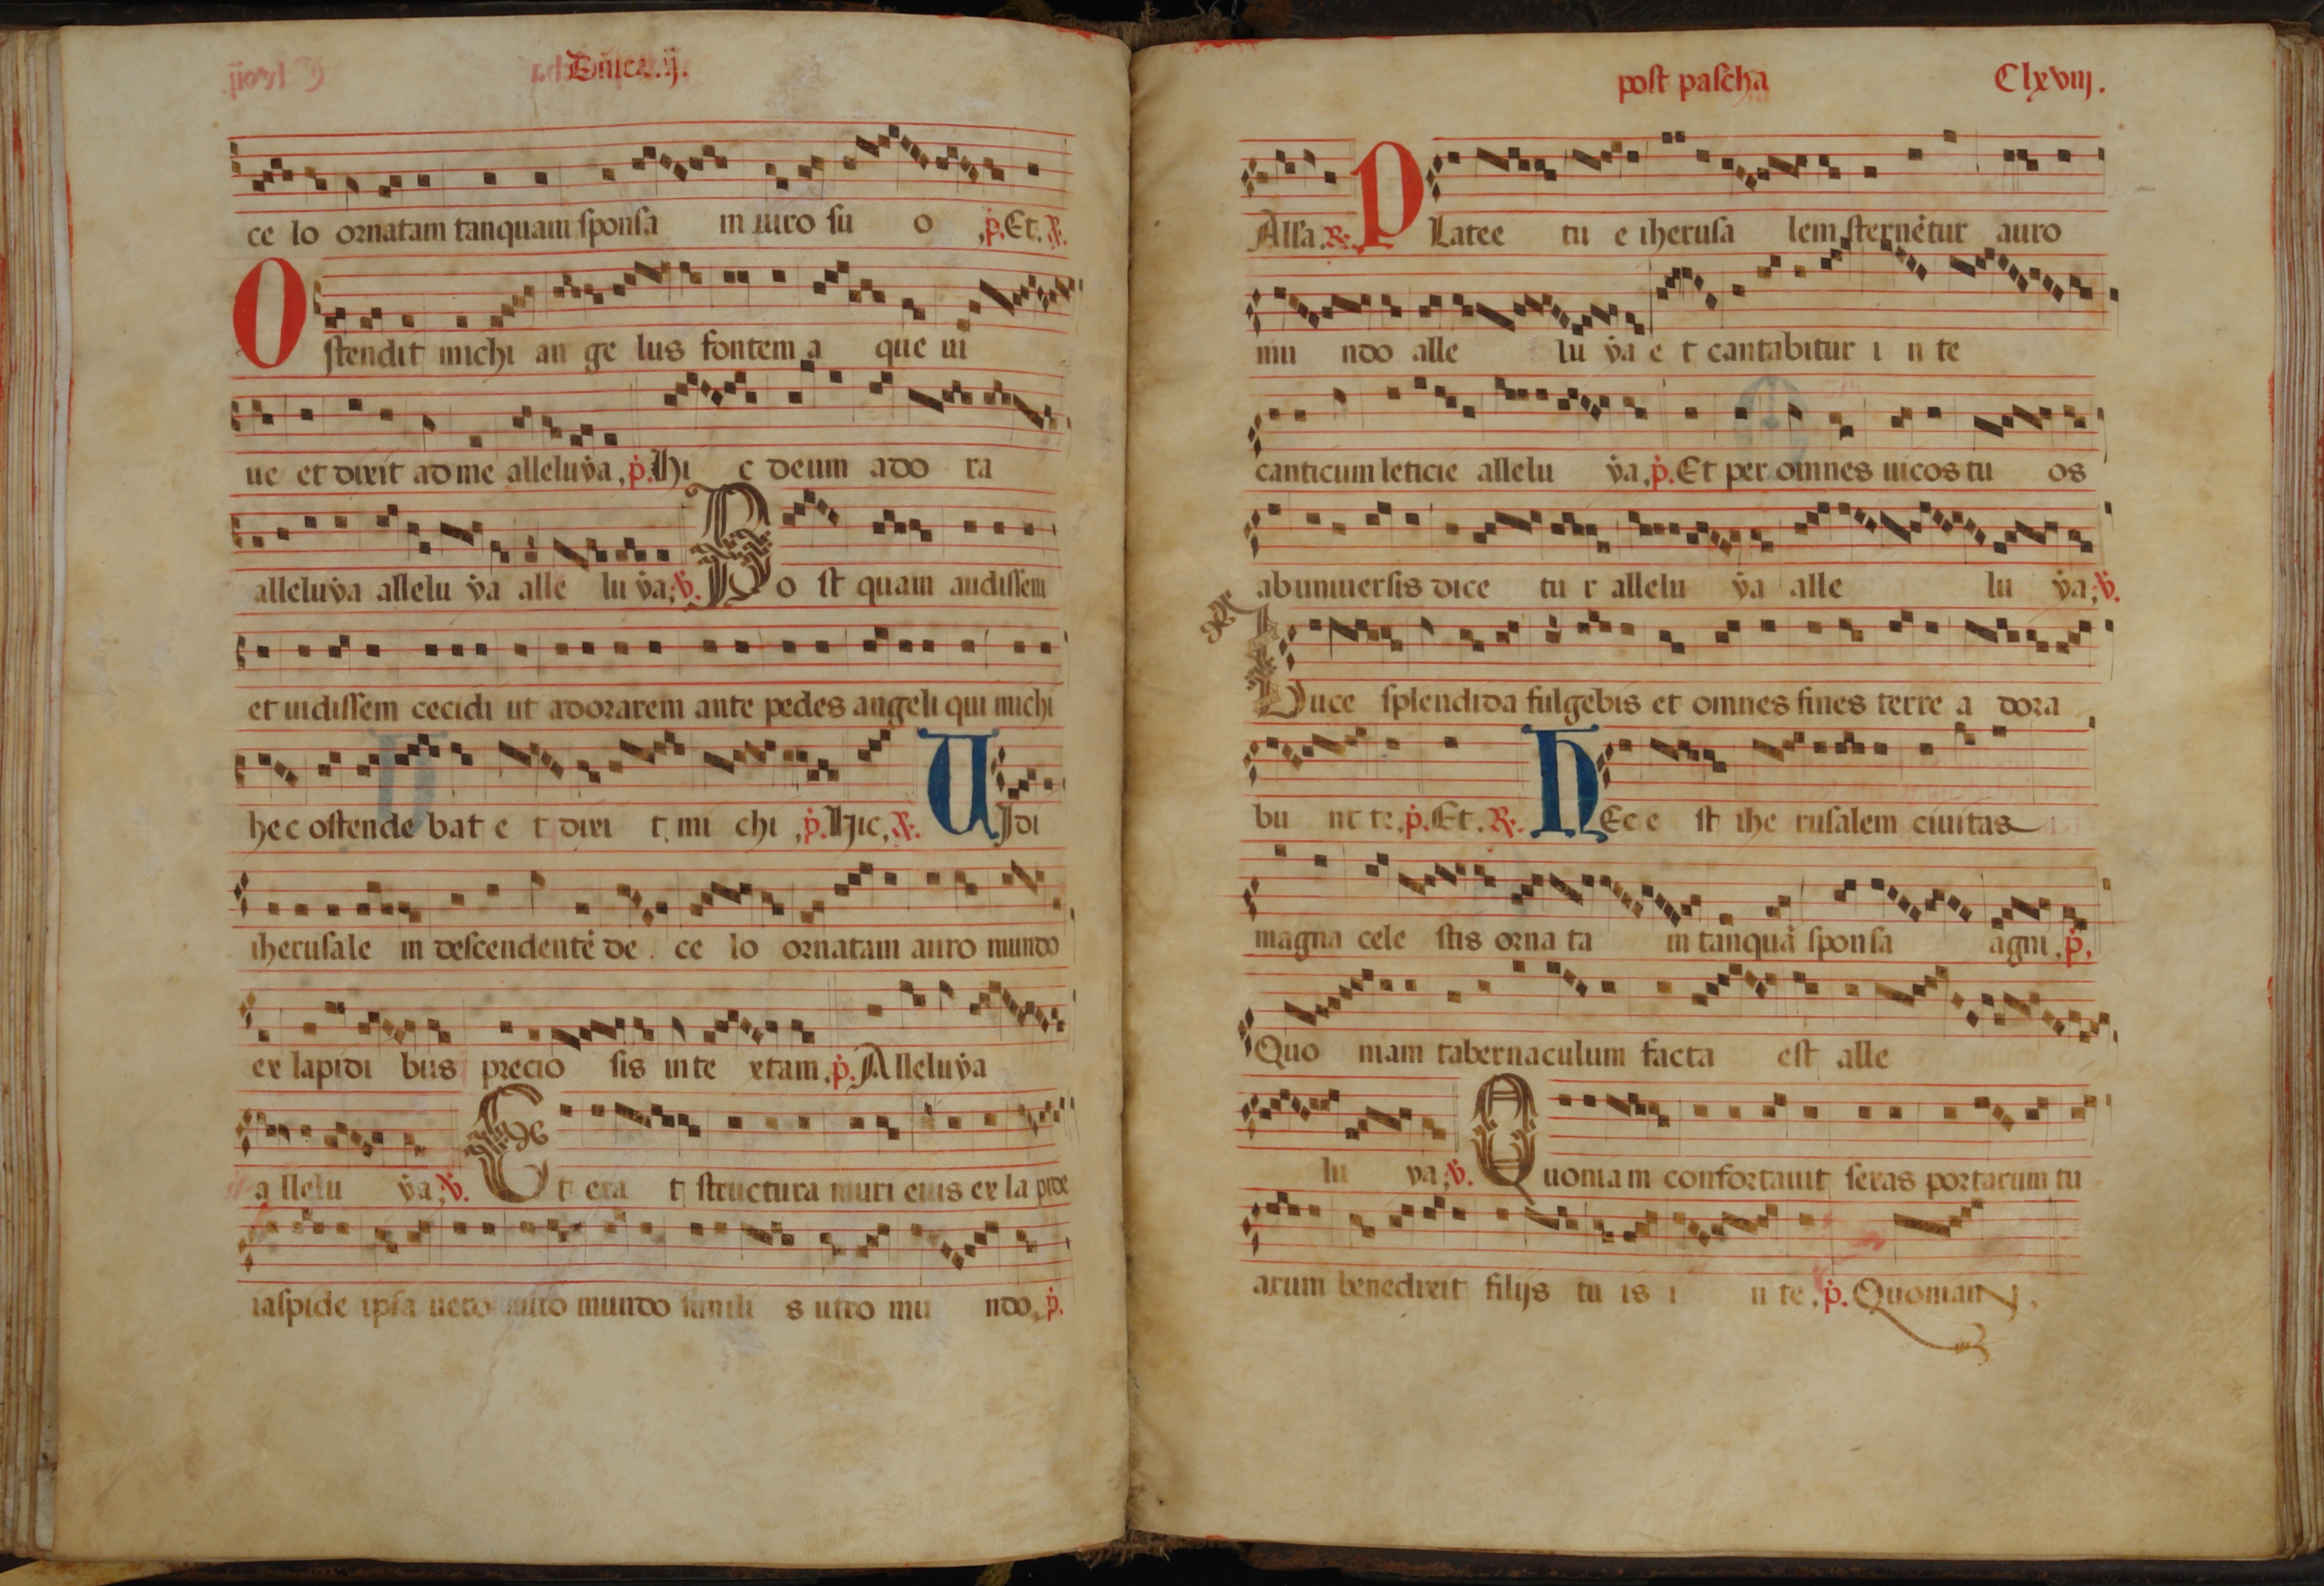 Dñica .ij.
ce lo ornatam tanquam sponsa m uiro su o .p. Et. R.
O stendit michi an ge lus fontem a que ui
ue et dixit ad me alleluya .p. Hi c deum ado ra
alleluya allelu ya alle lu ya; V. P o st quam audissem
et uidissem cecidi ut adorarem ante pedes angeli qui michi
hec ostende bat e t dixi t mi chi .p. Hic, R. U Idi
iherusale m descendentē de ce lo ornatam auro mundo
ex lapidi bus precio sis inte xtam .p. Alleluya
a llelu ya; V. E t era t structura muri eius ex la pide
iaspide ipsa uero auro mundo simili s uitro mu ndo, p.
post pascha Clxviij.
Alla. R. P Latee tu e iherusa lem sternētur auro
mu ndo alle lu ya e t cantabitur i n te
canticum leticie allelu ya, p. Et per omnes uicos tu os
ab uniuersis dice tu r allelu ya alle lu ya; V.
Luce splendida fulgebis et omnes fines terre a dora
bu nt te, p. Et. R. H Ec e st ihe rusalem ciuitas
magna cele stis orna ta m tanquā sponsa agni, p,
Quo niam tabernaculum facta est alle
lu ya; V. Q uoniam confortauit seras portarum tu
arum benedixit filijs tu is i n te, p. Quoniam,